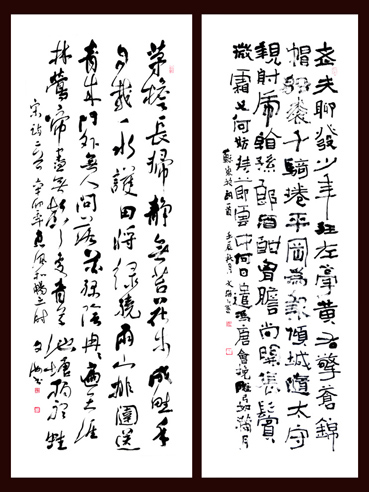 老夫聊發少年狂左牽黃右擎蒼錦
帽貂裘千騎捲平岡為報傾城隨太守
親射虎看孫郎酒酣胸膽尚開張鬢
微霜又何妨持節雲中何日遣馮唐會挽雕弓如滿月
茅檐長掃靜無苔花木成畦手
自栽一水護田將綠繞兩山排闥送
青來門外無人問落花綠陰冉冉遍天涯
林鶯啼無聲處青草池塘獨聽蛙
宋詩二首